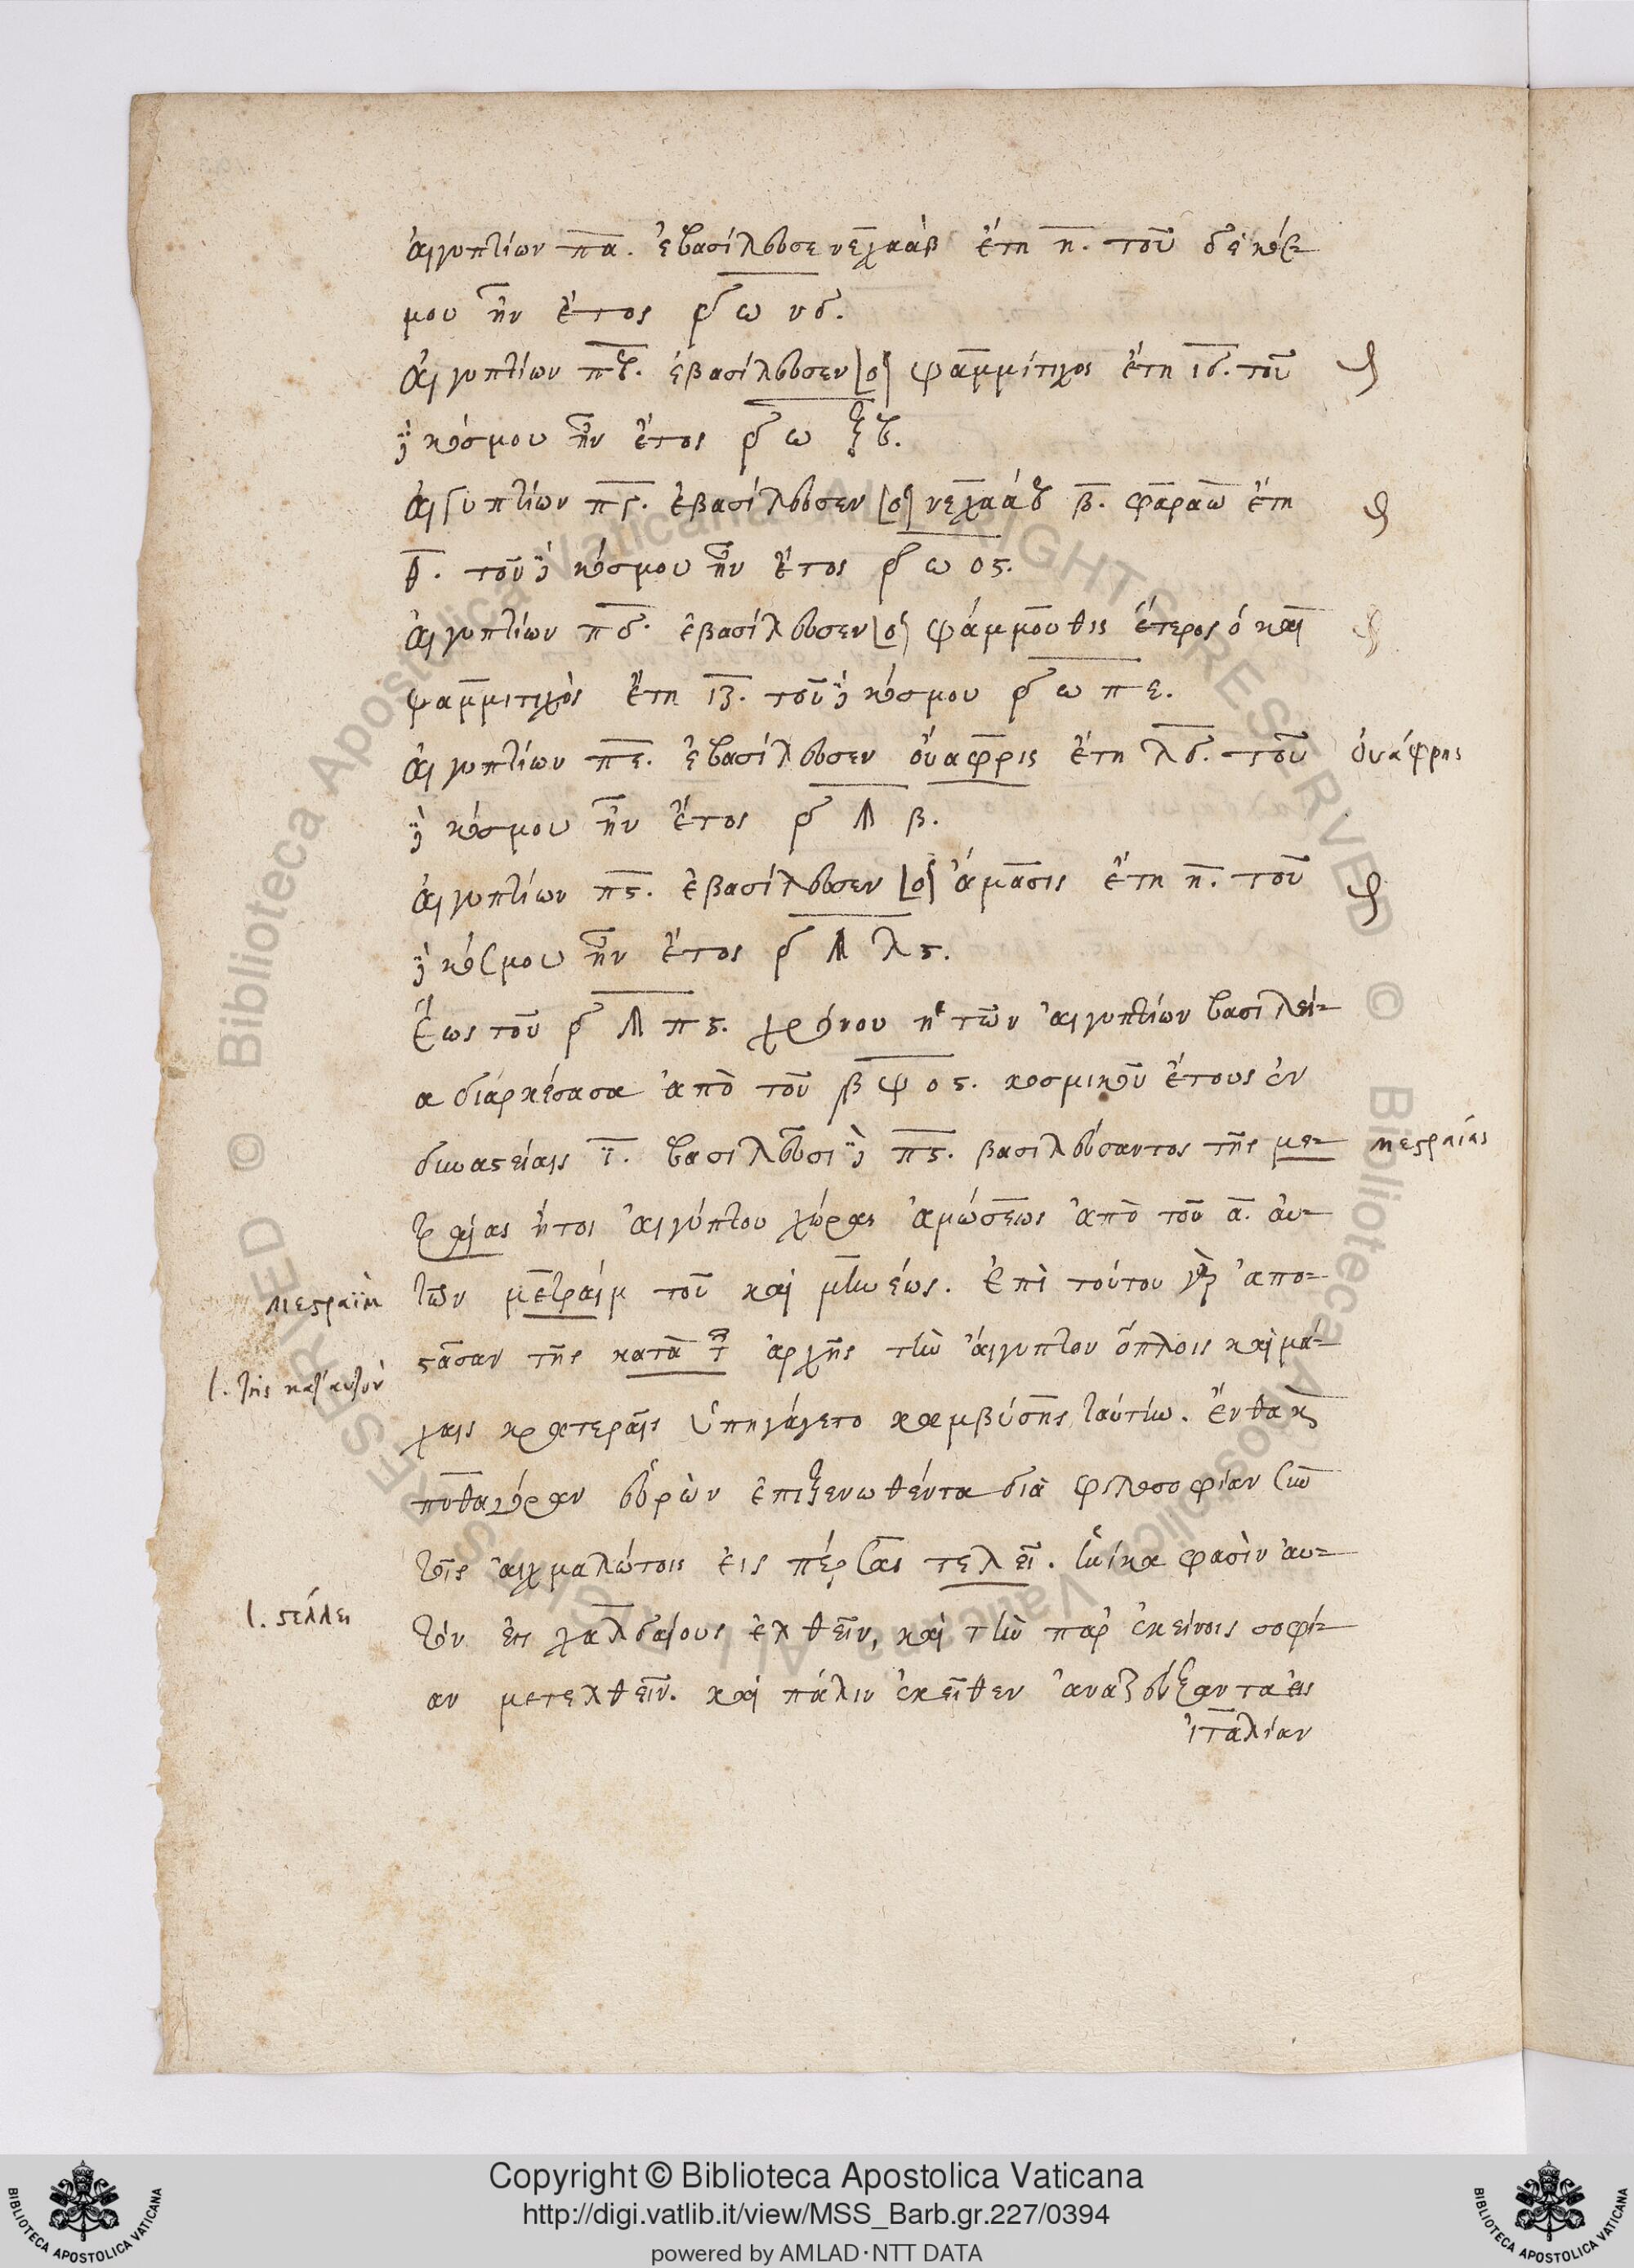 αἰγυπτίων πα. ἐβασίλευσε νεχααβ ἔτη η. τοῦ δὲ κόσ-
μου ἦν ἔτος ͵εωνδ.
αἰγυπτίων πβ. ἐβασίλευσεν [ὁ] ψαμμίτιχος ἔτη ιδ. τοῦ
δὲ κόσμου ἦν ἔτος ͵εωξβ.
αἰγυπτίων πγ. ἐβασίλευσεν [ὁ] νεχαάβ β. φαραὼ ἔτη
θ. τοῦ δὲ κόσμου ἦν ἔτος ͵εωος.
αἰγυπτίων πδ. ἐβασίλευσεν [ὁ] ψάμμουθις ἕτερος ὁ καὶ
ψαμμιτιχὸς ἔτη ιζ. τοῦ δὲ κόσμου ͵εωπε.
αἰγυπτίων πε. ἐβασίλευσεν οὐαφρις ἔτη λδ. τοῦ
ὀυάφρης
δὲ κόσμου ἦν ἔτος ͵εϡβ.
αἰγυπτίων πς. ἐβασίλευσεν [ὁ] ἄμασις ἔτη η. τοῦ
δὲ κόσμου ἦν ἔτος ͵εϡλς.
Ἕως τοῦ ͵εϡπς. χρόνου ἡ τῶν αἰγυπτίων βασιλεί-
α διαρκέσασα ἀπὸ τοῦ ͵βψος. κοσμικοῦ ἔτους ἐν
δυναστείαις ι. βασιλεῦσι δὲ πς. βασιλεύσαντος τῆς με-
μεστραίας
τραίας ἤτοι αἰγύπτου χώρας ἀμώσεως ἀπὸ τοῦ α. αὐ-
τῶν μετραὶμ τοῦ καὶ μηνέως. ἐπὶ τούτου γὰρ ἀπο-
μεστραῒμ
στᾶσαν τῆς κατὰ τ ἀρχῆς τὴν αἴγυπτον ὅπλοις καὶ μά-
l. τῆς κατ' αυτὸν
χαις κρατεραῖς ὑπηγάγετο καμβύσης ταύτην. ἔνθα καὶ
πυθαγόραν εὑρὼν ἐπιξενωθέντα διὰ φιλοσοφίαν σὺν
τοῖς αἰχμαλώτοις εἰς πέρσας τελεῖ. ἡνίκα φασὶν αὐ-
l. στέλλει
τὸν εἰς χαλδαίους ἐλθεῖν, καὶ τὴν παρ' ἐκείνοις σοφί-
αν μετελθεῖν. καὶ πάλιν ἐκεῖθεν ἀναζεύξαντα εἰς
ἰταλίαν
Copyright © Biblioteca Apostolica Vaticana
http://digi.vatlib.it/view/MSS_Barb.gr.227/0394
powered by AMLAD·NTT DATA